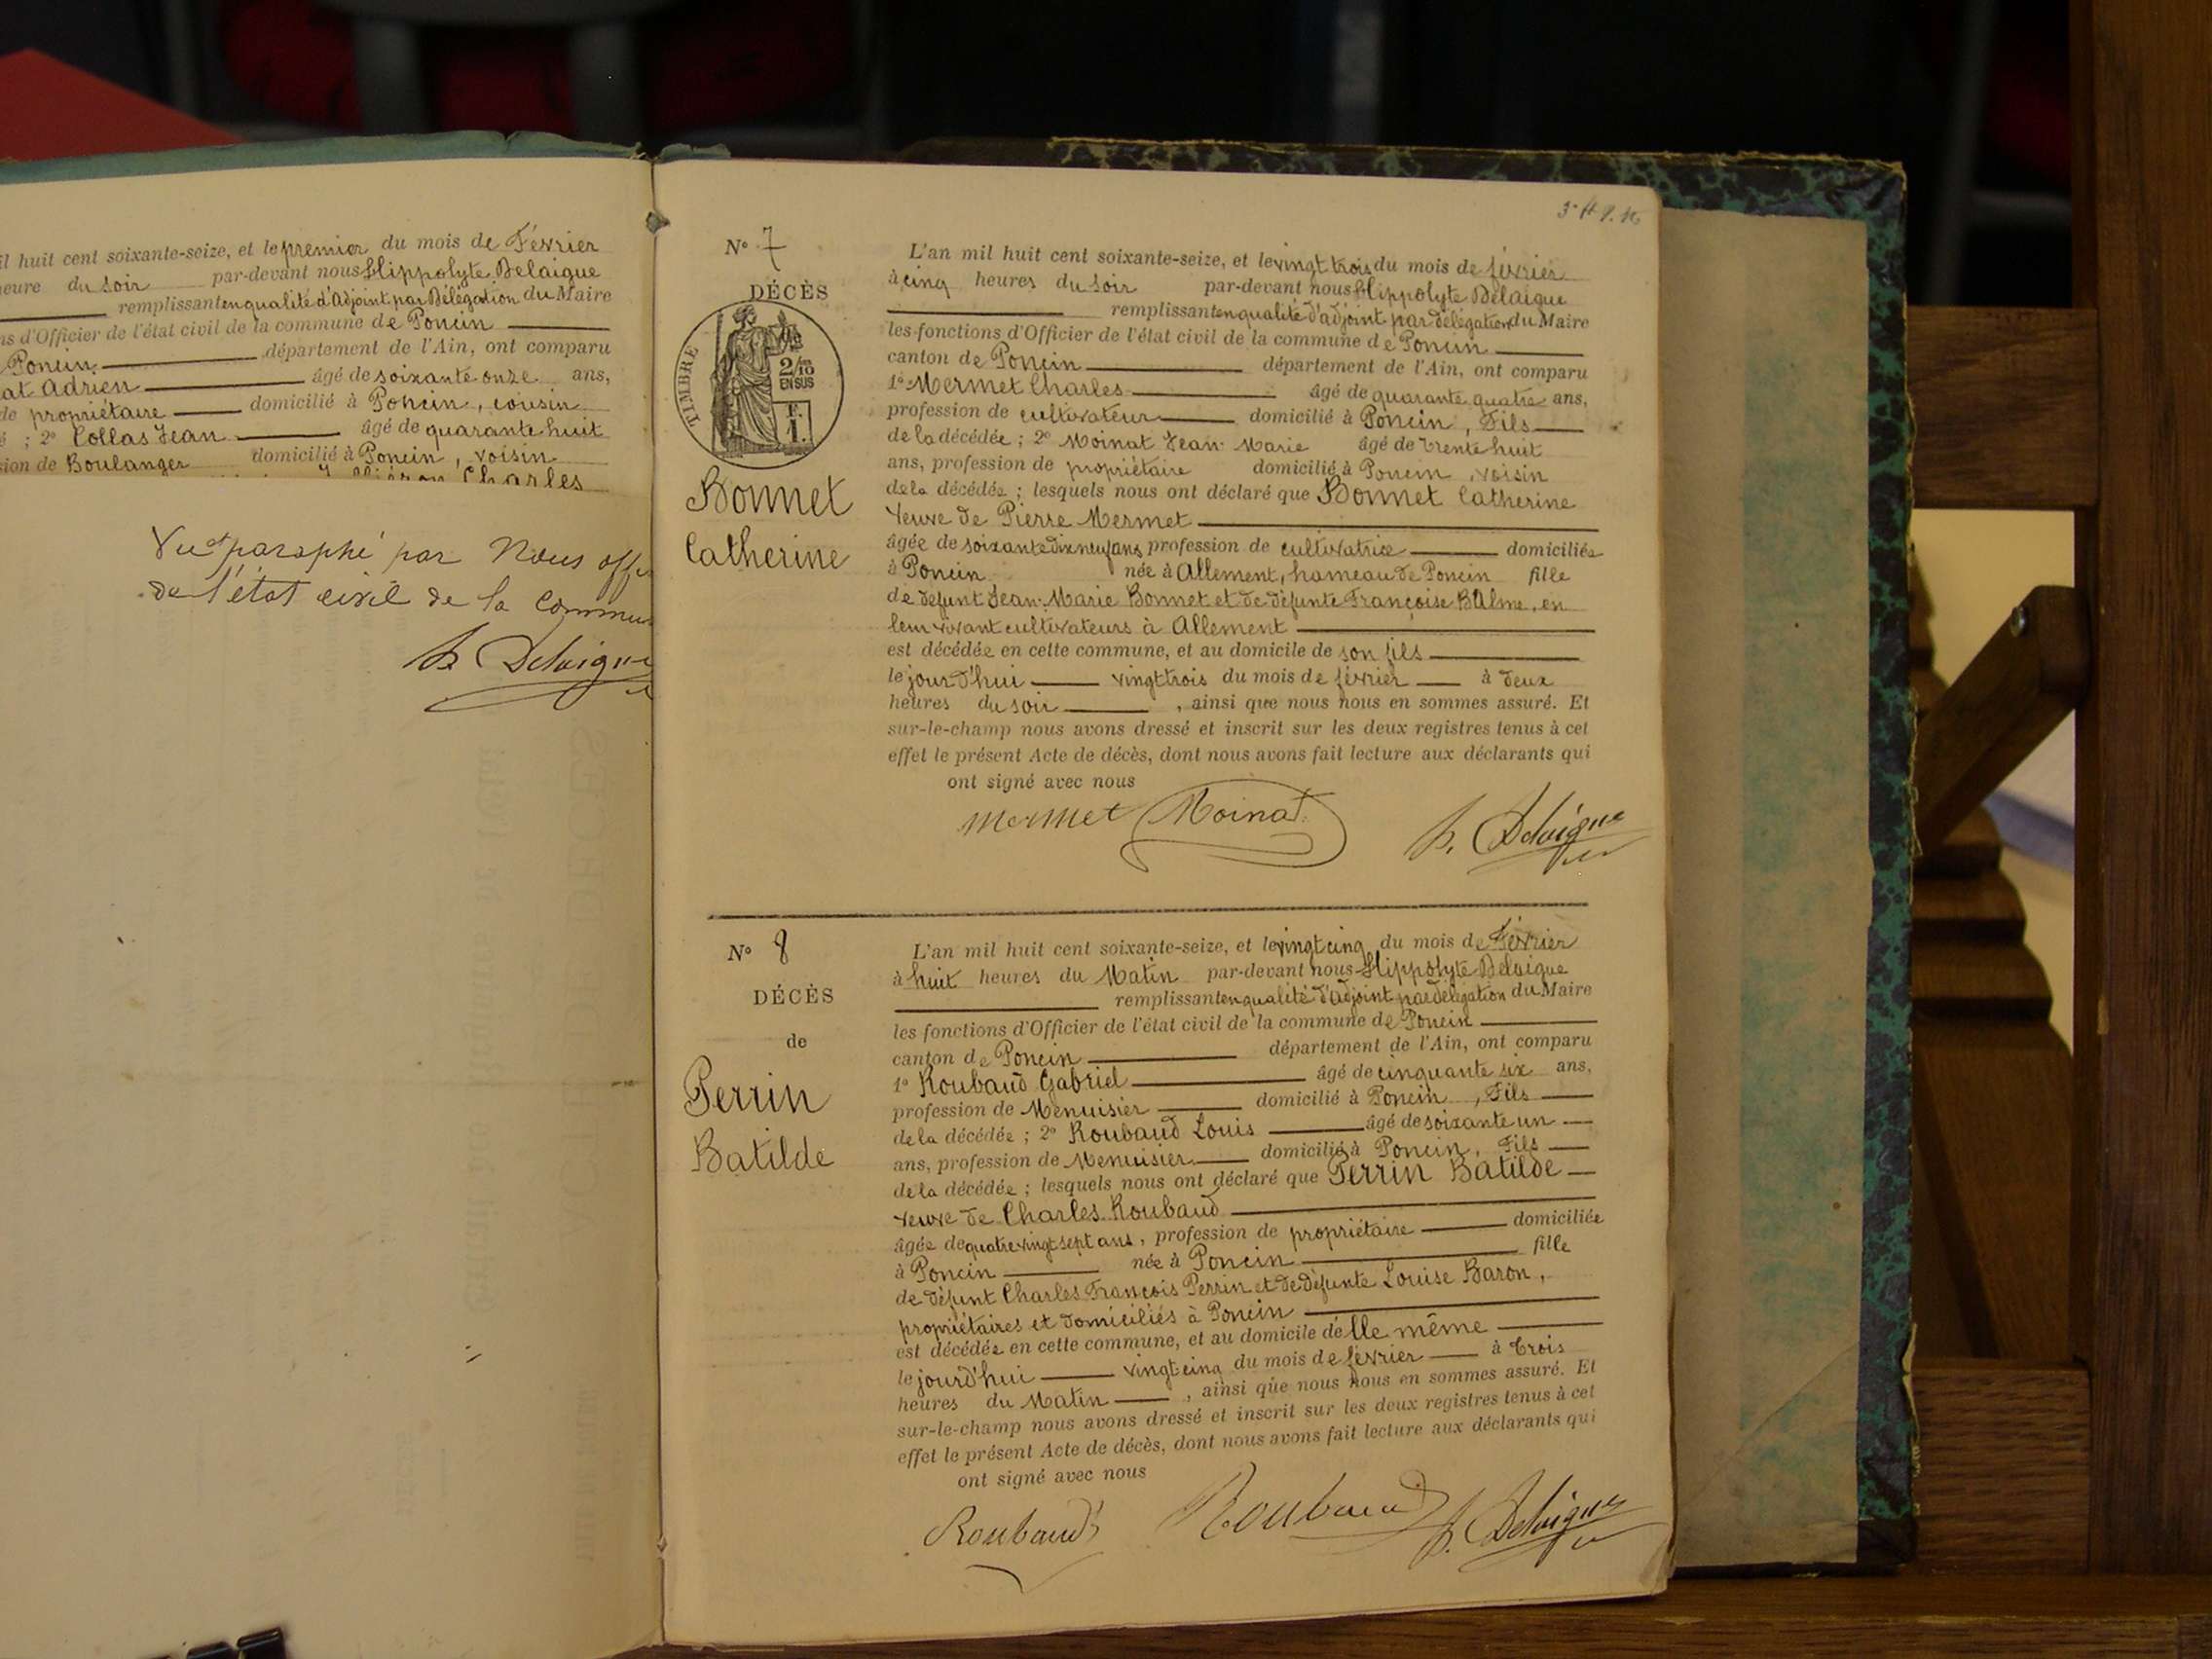 il huit cent soixante-seize, et le premier du mois de Février
heure du soir par-devant nous Hippolyte Delaigue
remplissant en qualité d'Adjoint par Délégation du Maire
ns d'Officier de l'état civil de la commune de Poncin
Poncin département de l'Ain, ont comparu
at Adrien âgé de soixante onze ans,
de propriétaire domicilié à Poncin, cousin
é ; 2° Collas Jean âgé de quarante huit
sion de Boulanger domicilié à Poncin, voisin
Charles
Vu et paraphé par Nous offi
de l'état civil de la Commu
H. Delaigue
N° 7
DÉCÈS
TIMBRE
2/10
EN SUS
F.
1.
Bonnet
Catherine
L'an mil huit cent soixante-seize, et le vingt trois du mois de février
à cinq heures du soir par-devant nous Hippolyte Delaigue
remplissant en qualité d'adjoint par délégation du Maire
les fonctions d'Officier de l'état civil de la commune de Poncin
canton de Poncin département de l'Ain, ont comparu
1° Mermet Charles âgé de quarante quatre ans,
profession de cultivateur domicilié à Poncin, Fils
de la décédée ; 2° Moinat Jean-Marie âgé de trente huit
ans, profession de propriétaire domicilié à Poncin, voisin
de la décédée ; lesquels nous ont déclaré que Bonnet Catherine
veuve de Pierre Mermet
âgée de soixante dix neuf ans profession de cultivatrice domiciliée
à Poncin née à Allement, hameau de Poncin fille
de défunt Jean-Marie Bonnet et de défunte Françoise Balme, en
leur vivant cultivateurs à Allement
est décédée en cette commune, et au domicile de son fils
le jourd'hui vingt trois du mois de février à deux
heures du soir, ainsi que nous nous en sommes assuré. Et
sur-le-champ nous avons dressé et inscrit sur les deux registres tenus à cet
effet le présent Acte de décès, dont nous avons fait lecture aux déclarants qui
ont signé avec nous
Mermet Moinat H. Delaigue
N° 8
DÉCÈS
de
Perrin
Batilde
L'an mil huit cent soixante-seize, et le vingt cinq du mois de Février
à huit heures du Matin par-devant nous Hippolyte Delaigue
remplissant en qualité d'adjoint par délégation du Maire
les fonctions d'Officier de l'état civil de la commune de Poncin
canton de Poncin département de l'Ain, ont comparu
1° Roubaud Gabriel âgé de cinquante six ans,
profession de Menuisier domicilié à Poncin, Fils
de la décédée ; 2° Roubaud Louis âgé de soixante un
ans, profession de Menuisier domicilié à Poncin, Fils
de la décédée ; lesquels nous ont déclaré que Perrin Batilde
veuve de Charles Roubaud
âgée de quatre vingt sept ans, profession de propriétaire domiciliée
à Poncin née à Poncin fille
de défunt Charles François Perrin et de défunte Louise Baron,
propriétaires et domiciliés à Poncin
est décédée en cette commune, et au domicile d'elle même
le jourd'hui vingt cinq du mois de février à trois
heures du Matin, ainsi que nous nous en sommes assuré. Et
sur-le-champ nous avons dressé et inscrit sur les deux registres tenus à cet
effet le présent Acte de décès, dont nous avons fait lecture aux déclarants qui
ont signé avec nous
Roubaud Roubaud H. Delaigue